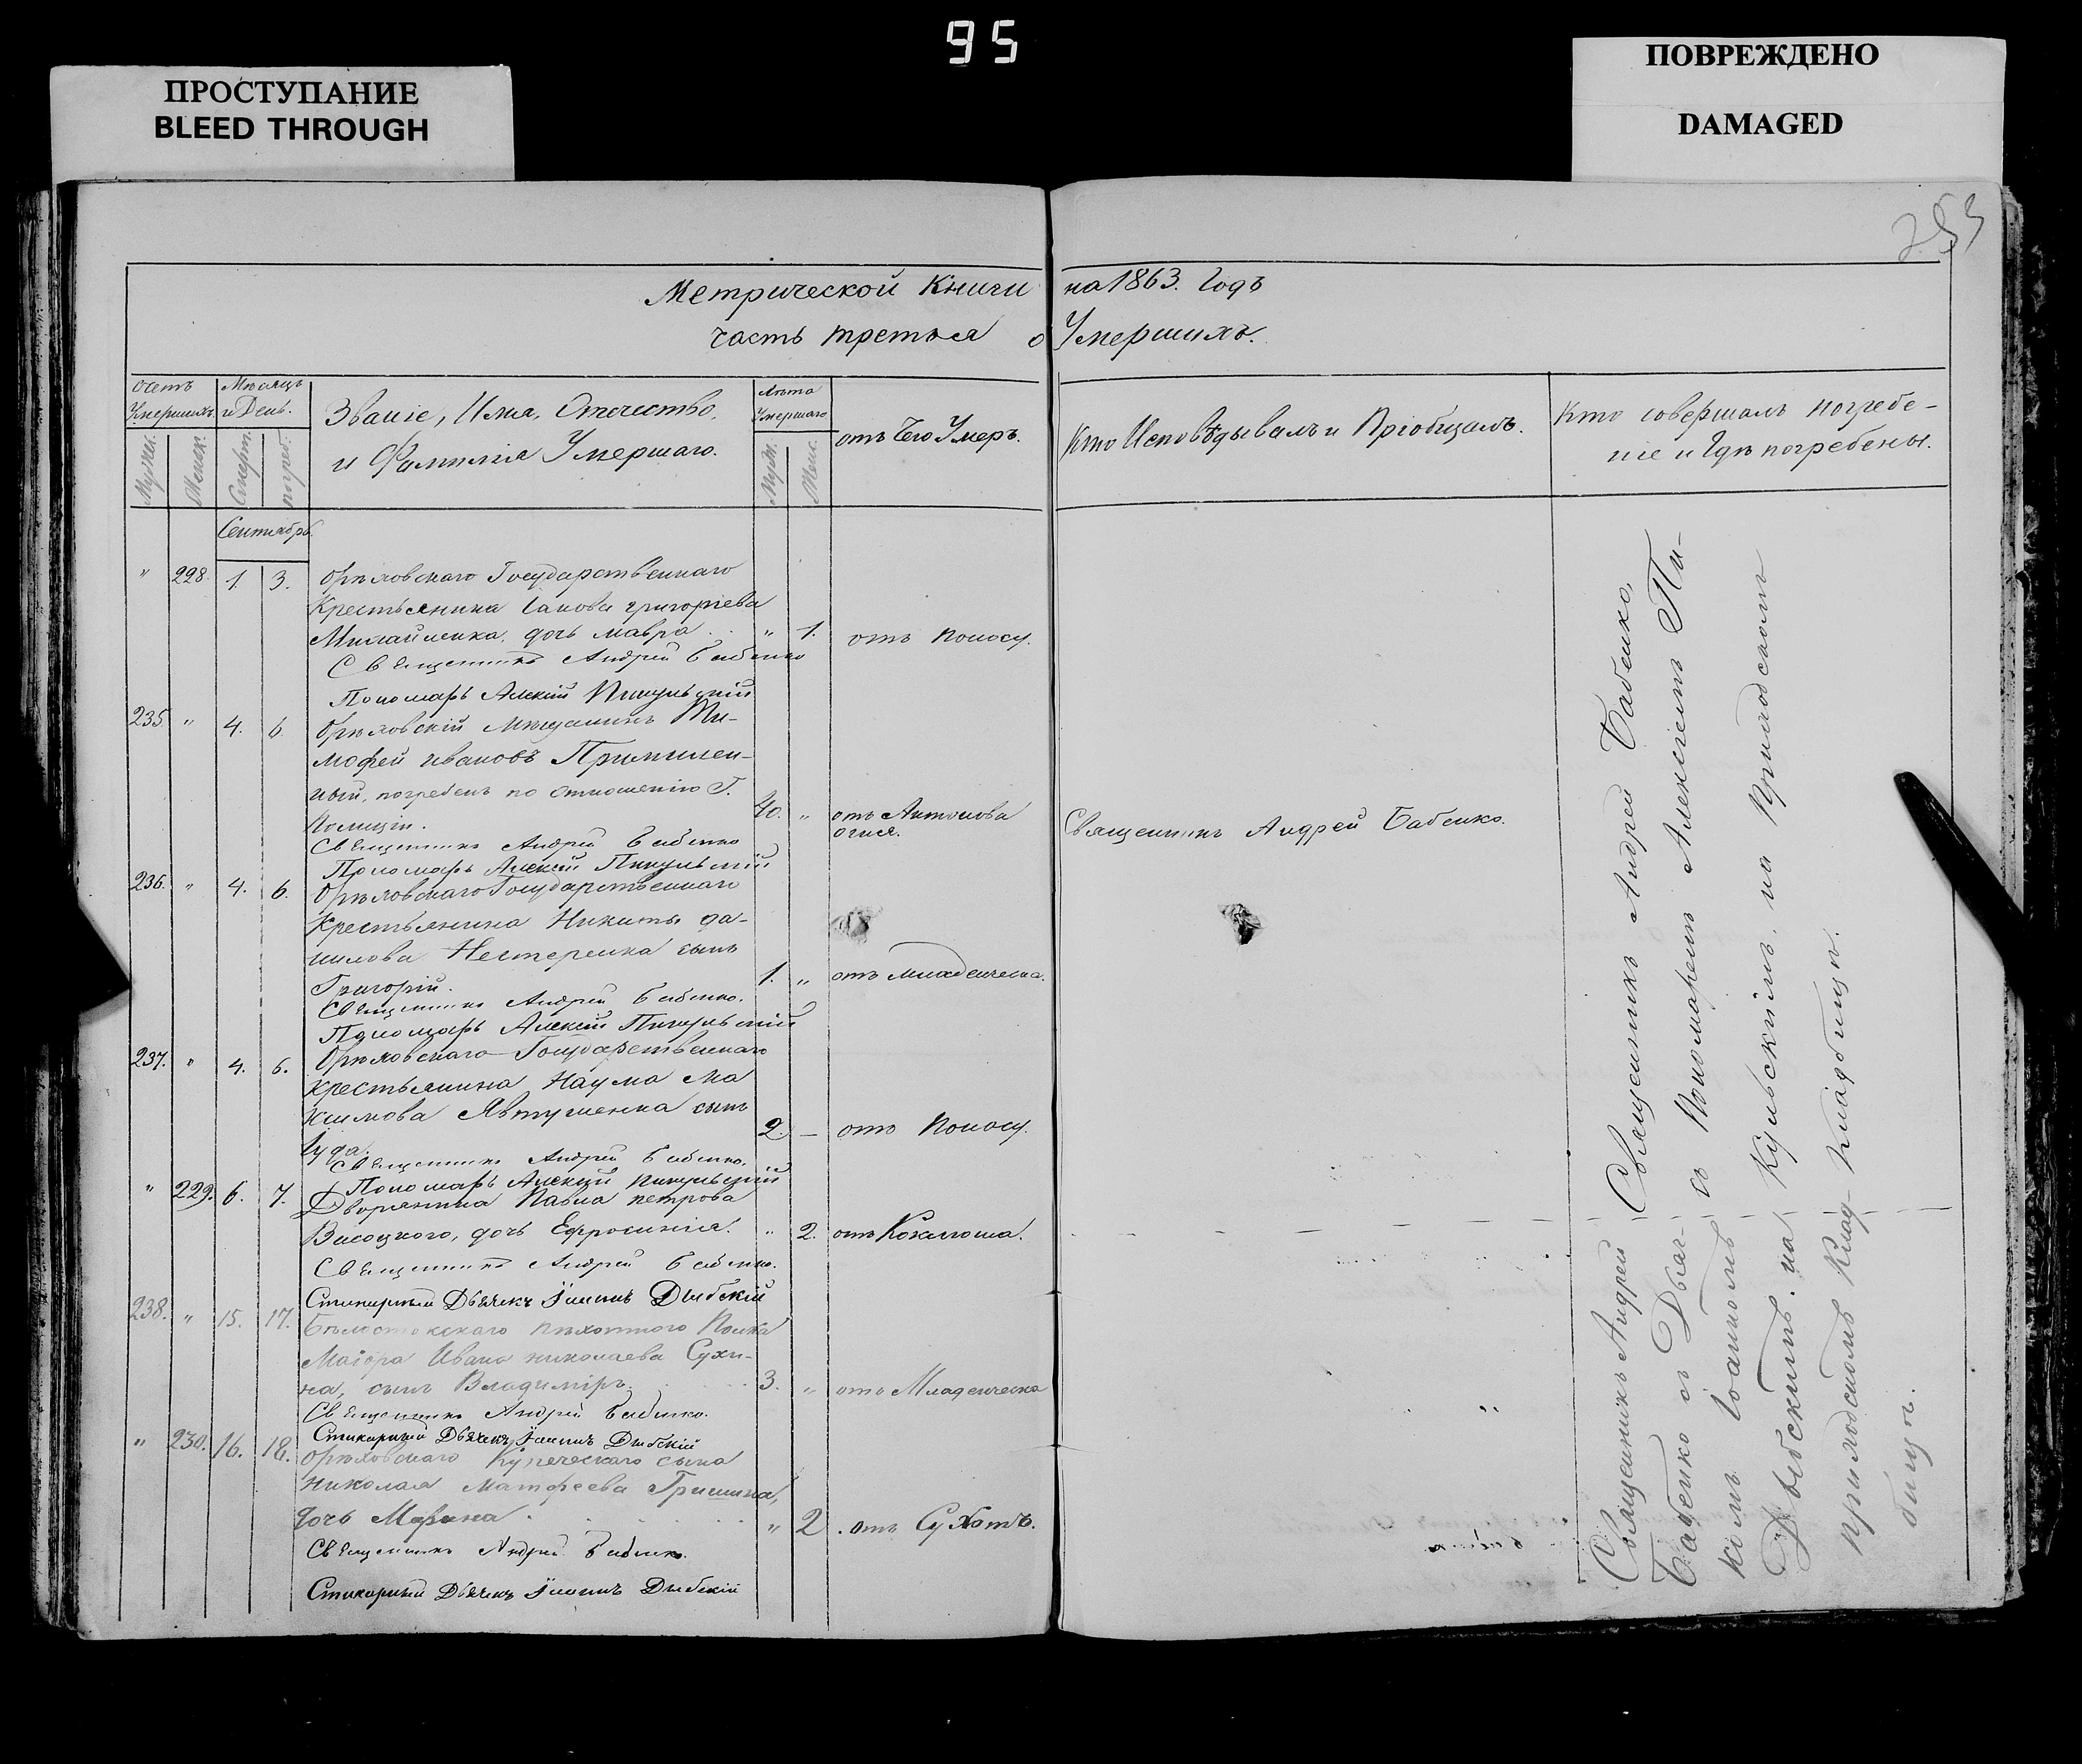 95
ПРОСТУПАНИЕ
BLEED THROUGH
ПОВРЕЖДЕНО
DAMAGED
253
Метрической Книги на 1863. Годъ
часть третья о Умершихъ.
Счетъ Умершихъ.
Мѣсяцъ и День.
Званіе, Имя, Отчество,
и Фамилія Умершаго.
Лѣта Умершаго
отъ Чего Умеръ.
Кто Исповѣдывалъ и Пріобщалъ.
Кто совершалъ погребе-
ніе и Гдѣ погребены.
Мужск.
Женск.
Смерт.
погреб.
Муж.
Жен.
Сентябрь.
" 228. 1. 3. Орѣховскаго Государственнаго
Крестьянина Іакова григоріева
Михайленка, дочь мавра . . " 1. отъ поносу.
Священникъ Андрей Бабенко
Пономарь Алексій Пикульскій
235 " 4. 6. Орѣховскій Мѣщанинъ Ти-
мофей ивановъ Примилен-
ный, погребенъ по отношенію Г.
Полиціи. 40. " отъ Антонова
огня. Священникъ Андрей Бабенко.
Священникъ Андрей Бабенко
Пономарь Алексій Пикульскій
236. " 4. 6. Орѣховскаго Государственнаго
Крестьянина Никиты да-
нилова Нестеренка сынъ
Григорій. 1. " отъ младенческа.
Священникъ Андрей Бабенко.
Пономарь Алексій Пикульскій
237. " 4. 6. Орѣховскаго Государственнаго
крестьянина Наума Ма
ксимова Явтушенка сынъ
Іуда. 2. — отъ поносу.
Священникъ Андрей Бабенко.
Пономарь Алексій Пикульскій
" 229. 6. 7. Дворянина Павла петрова
Висоцкого, дочь Ефросинія. " 2. отъ Коклюша.
Священникъ Андрей Бабенко.
Стихарный Дьячекъ Іоаннъ Дыбскій
238. " 15. 17. Бѣлостокскаго пѣхотного Полка
Маіора Ивана николаева Сухи-
на, сынъ Владиміръ. 3. " отъ Младенческа
Священникъ Андрей Бабенко.
Стихарный Дьячекъ Іоаннъ Дыбскій
" 230. 16. 18. Орѣховскаго Купеческаго сына
Николая Матфеева Гришина,
дочь Марина . . . " 2 . отъ Сухотъ.
Священникъ Андрей Бабенко.
Стихарный Дьячекъ Іоаннъ Дыбскій
Священникъ Андрей Бабенко,
съ Пономаремъ Алексіемъ Пи-
кульскимъ. на Приходскомъ
кладбищѣ.
Священникъ Андрей
Бабенко съ Дьяч-
комъ Іоанномъ
Дыбскимъ. на
приходскомъ клад-
бищѣ.